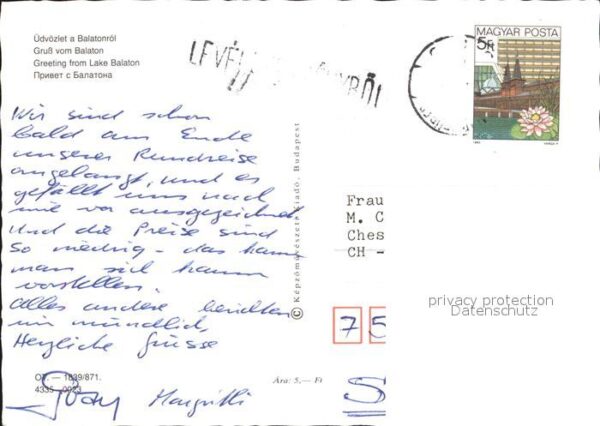 Üdvözlet a Balatonról
Gruß vom Balaton
Greeting from Lake Balaton
Привет с Балатона
MAGYAR POSTA
5Ft
Wir sind schon
bald am Ende
unserer Rundreise
angelangt, und es
gefällt uns nach
wie vor ausgezeichnet
Und die Preise sind
so niedrig - das kann
man sich kaum
vorstellen.
Alles andere berichten
wir mündlich,
Herzliche Grüsse
© Képzőművészeti Kiadó, Budapest
Frau
M. C
Ches
CH -
75
S
privacy protection
Datenschutz
Ára: 5,— Ft